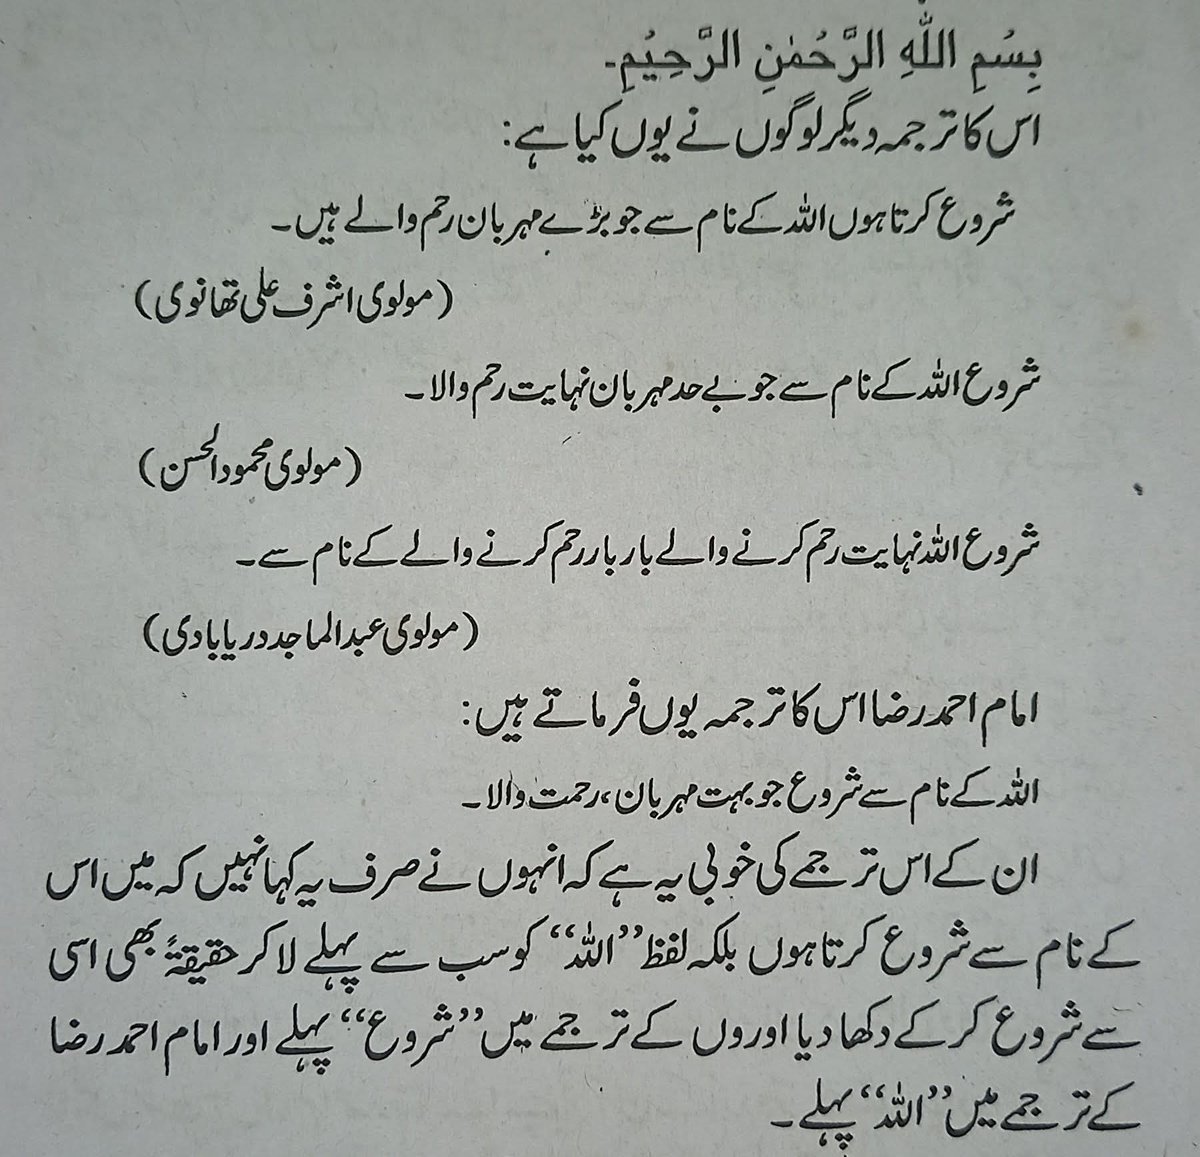 بِسْمِ اللهِ الرَّحْمٰنِ الرَّحِيْمِ۔
اس کا ترجمہ دیگر لوگوں نے یوں کیا ہے:
شروع کرتا ہوں اللہ کے نام سے جو بڑے مہربان رحم والے ہیں۔
(مولوی اشرف علی تھانوی)
شروع اللہ کے نام سے جو بے حد مہربان نہایت رحم والا۔
(مولوی محمود الحسن)
شروع اللہ نہایت رحم کرنے والے بار بار رحم کرنے والے کے نام سے۔
(مولوی عبد الماجد دریابادی)
امام احمد رضا اس کا ترجمہ یوں فرماتے ہیں:
اللہ کے نام سے شروع جو بہت مہربان، رحمت والا۔
ان کے اس ترجمے کی خوبی یہ ہے کہ انہوں نے صرف یہ کہا نہیں کہ میں اس
کے نام سے شروع کرتا ہوں بلکہ لفظ ”اللہ“ کو سب سے پہلے لا کر حقیقۃً بھی اسی
سے شروع کر کے دکھا دیا اوروں کے ترجمے میں ”شروع“ پہلے اور امام احمد رضا
کے ترجمے میں ”اللہ“ پہلے۔